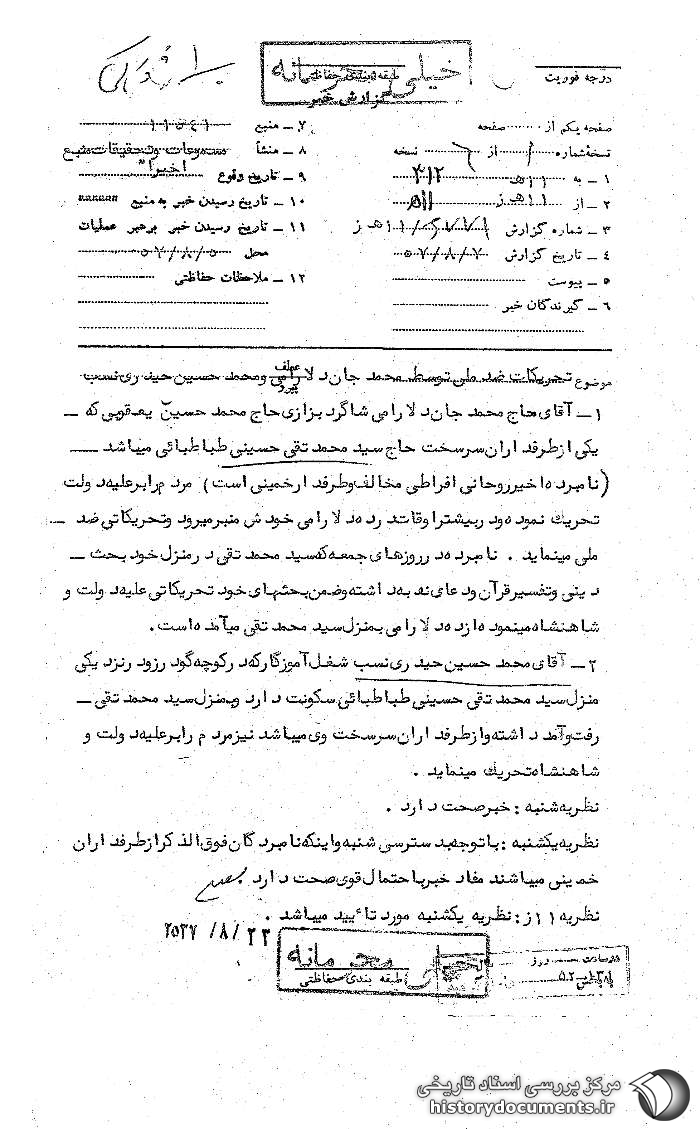 خیلی محرمانه
طبقه بندی حفاظتی
گزارش خبر
درجه فوریت
صفحه یکم از صفحه
نسخه شماره از نسخه
۱ ـ به ۳۱۲
۲ ـ از ۱۱ ه‍ ز
۳ ـ شماره گزارش
۴ ـ تاریخ گزارش ۵۷/۸/۷
۵ ـ پیوست
۶ ـ گیرندگان خبر
۷ ـ منبع
۸ ـ منشأ مسموعات وتحقیقات منبع
۹ ـ تاریخ وقوع اخیرا"
۱۰ ـ تاریخ رسیدن خبر به منبع
۱۱ ـ تاریخ رسیدن خبر برهبر عملیات
محل ۵۷/۸/۵
۱۲ ـ ملاحظات حفاظتی
موضوع تحریکات ضد ملی توسط محمد جان دلارامی ومحمد حسین حیدری نسب
۱ ـ آقای حاج محمد جان دلارامی شاگرد بزازی حاج محمد حسین یعقوبی که ـ
یکی ازطرفداران سرسخت حاج سید محمد تقی حسینی طباطبائی میباشد ـ
(نامبرده اخیرروحانی افراطی مخالف وطرفدارخمینی است) مردم رابرعلیه دولت
تحریک نموده ودربیشتراوقات درده دلارامی خودش منبرمیرود وتحریکاتی ضد ـ
ملی مینماید . نامبرده درروزهای جمعه که سید محمد تقی درمنزل خود بحث ـ
دینی وتفسیرقرآن ودعای ندبه داشته وضمن بحثهای خود تحریکاتی علیه دولت و
شاهنشاه مینموده ازده دلارامی بمنزل سید محمد تقی میآمده است .
۲ ـ آقای محمد حسین حیدری نسب شغل آموزگارکه درکوچه گودرزود رنزدیکی
منزل سید محمد تقی حسینی طباطبائی سکونت دارد وبمنزل سید محمد تقی ـ
رفت وآمد داشته وازطرفداران سرسخت وی میباشد نیزمردم رابرعلیه دولت و
شاهنشاه تحریک مینماید .
نظریه شنبه : خبرصحت دارد .
نظریه یکشنبه : باتوجه بدسترسی شنبه واینکه نامبردگان فوق الذکرازطرفداران
خمینی میباشند مفاد خبرباحتمال قوی صحت دارد
نظریه ۱۱ز: نظریه یکشنبه مورد تائید میباشد .
۲۵۳۷/۸/۲۳
خیلی محرمانه
طبقه بندی حفاظتی
مرکز بررسی اسناد تاریخی
historydocuments.ir